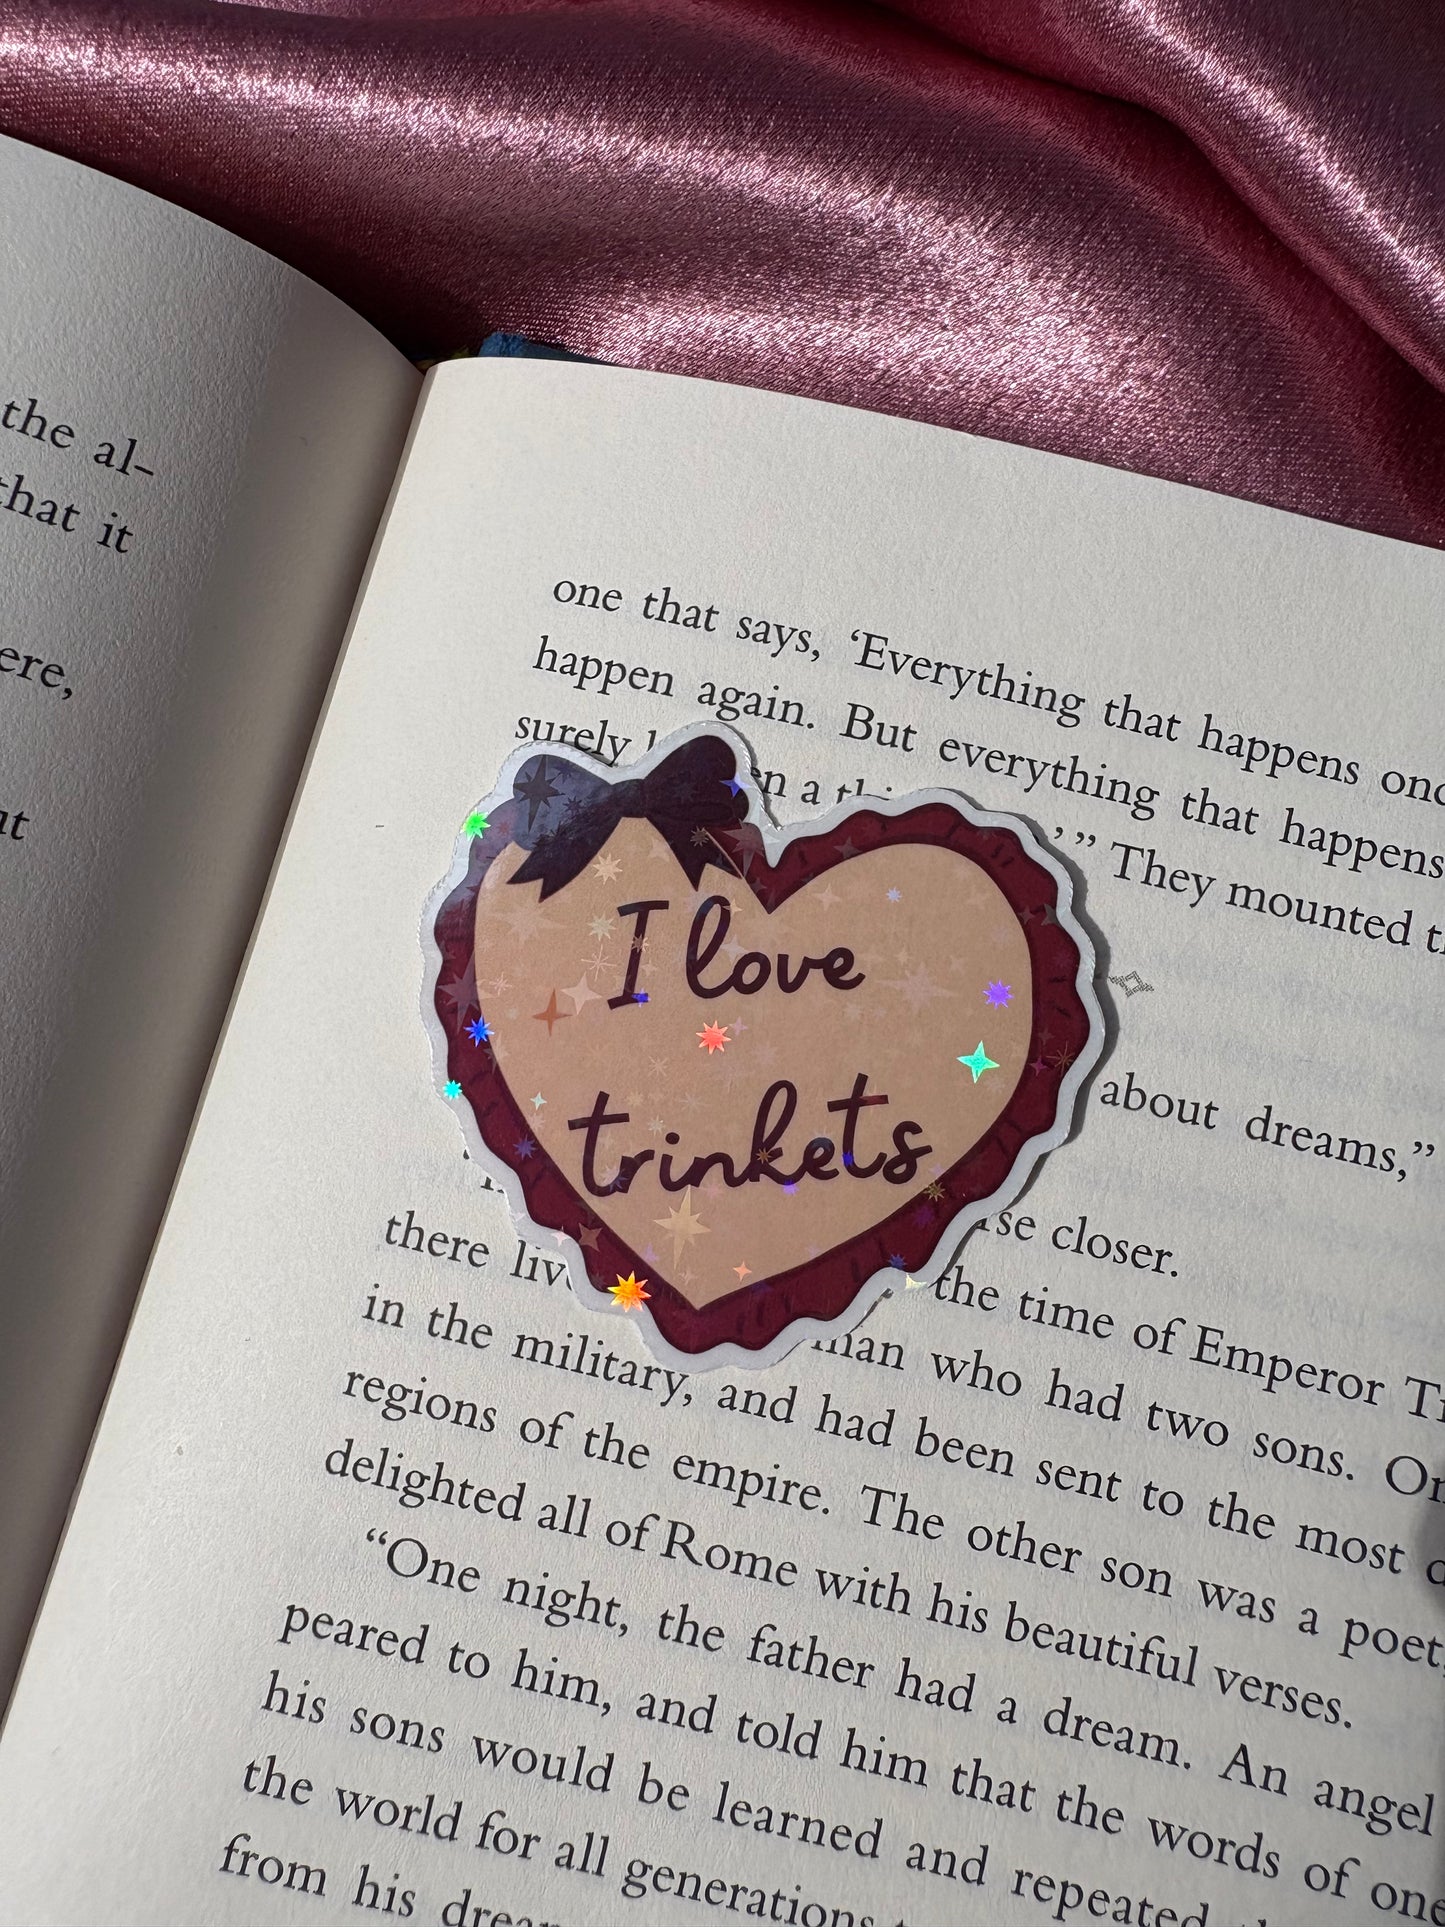 the al-
that it
ere,
ut
one that says, ‘Everything that happens onc
happen again. But everything that happens
surely
en a thi
’ ” They mounted t
about dreams,”
rse closer.
there liv the time of Emperor Ti
in the military, man who had two sons. On
regions of the empire. and had been sent to the most d
delighted all of Rome with his beautiful verses. The other son was a poet,
“One night, the father had a dream. An angel
peared to him, and told him that the words of one
his sons would be learned and repeated
the world for all generations
from his dream
I love
trinkets